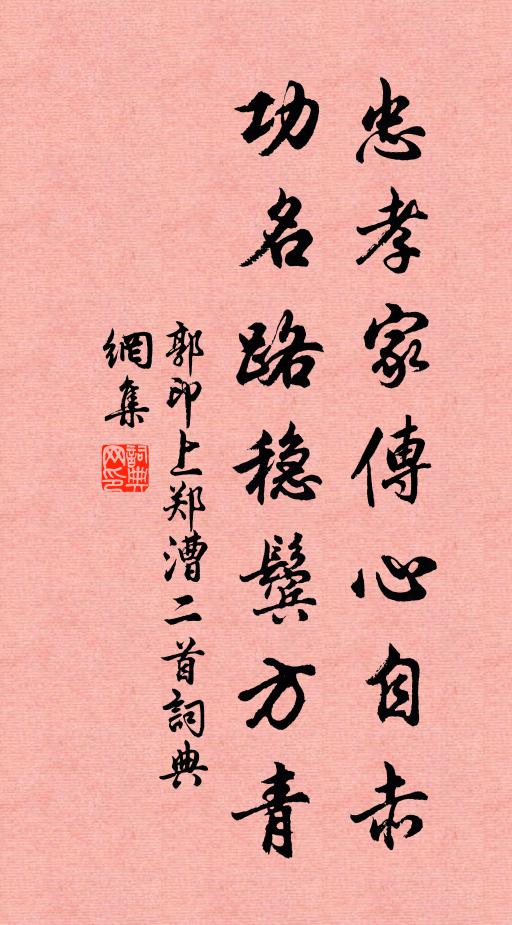 忠孝家傳心自赤
功名路稳鬓方青
郭印上郑漕二首詞典
網集
詞典
网印